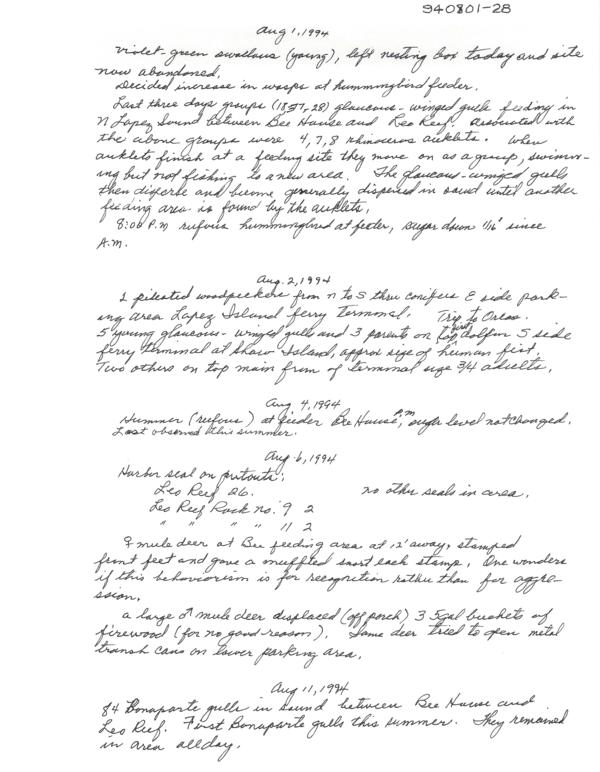 940801-28
Aug 1, 1994
Violet-green swallows (young), left nesting box today and site
now abandoned.
Decided increase in wasps at hummingbird feeder.
Last three days groups (18, 37, 28) glaucous-winged gulls feeding in
N Lopez Sound between Bee House and Leo Reef. Associated with
the above groups were 4, 7, 8 rhinoceros auklets. When
auklets finish at a feeding site they move on as a group, swimm-
ing but not fishing to a new area. The glaucous-winged gulls
then disperse and become generally dispersed in sound until another
feeding area is found by the auklets.
8:00 P.M rufous hummingbird at feeder, sugar down 1/16" since
A.M.
Aug. 2, 1994
2 pileated woodpeckers from N to S thru conifers E side park-
ing area Lopez Island ferry terminal. Trip to Orcas.
5 young glaucous-winged gulls and 3 parents on top dolfin S side
ferry terminal at Shaw Island, approx size of human fist.
Two others on top main frum of terminal size 3/4 adults.
Aug 4, 1994
Hummer (rufous) at feeder Bee House, P.M. sugar level not changed.
Last observed this summer.
Aug. 6, 1994
Harbor seal on putouts:
Leo Reef 26. no other seals in area.
Leo Reef Rock no. 9 2
" " " " 11 2
♀ mule deer at Bee feeding area at 12' away, stamped
front feet and gave a muffled snort each stamp. One wonders
if this behaviorism is for recognition rather than for aggre-
ssion.
a large ♂ mule deer displaced (off porch) 3 5gal buckets of
firewood (for no good reason). Same deer tried to open metal
trash cans on lower parking area.
Aug 11, 1994
84 Bonaparte gulls in sound between Bee House and
Leo Reef. First Bonaparte gulls this summer. They remained
in area all day.